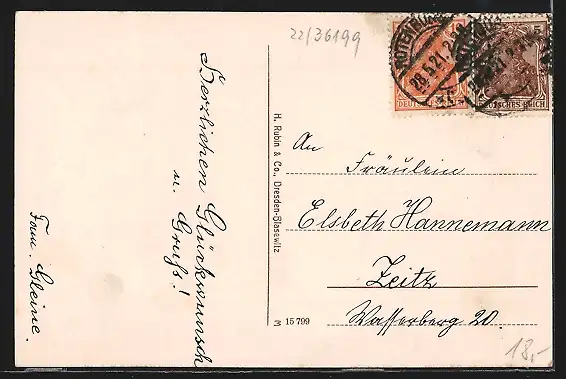 22/36199
Herzlichen Glückwunsch
u. Gruß!
Fam. Gleine.
H. Rubin & Co., Dresden-Blasewitz
M 15 799
28.5.21.
DEUTSCHES REICH
An
Fräulein
Elsbeth Hannemann
Zeitz
Wasserberg 20.
18,-